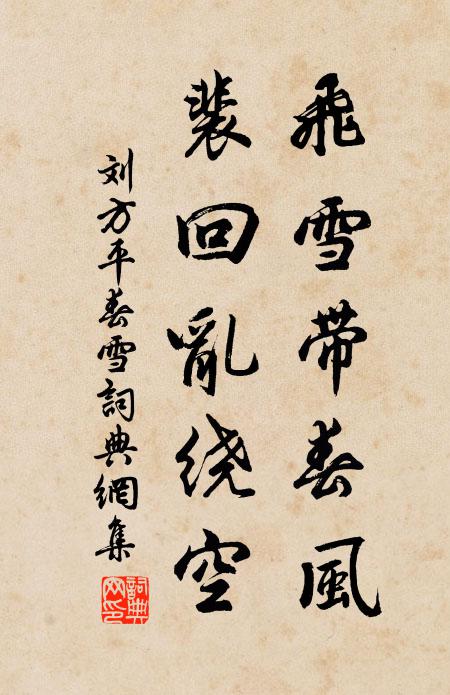 飛雪带春風
裴回亂绕空
刘方平春雪詞典網集
詞典網印